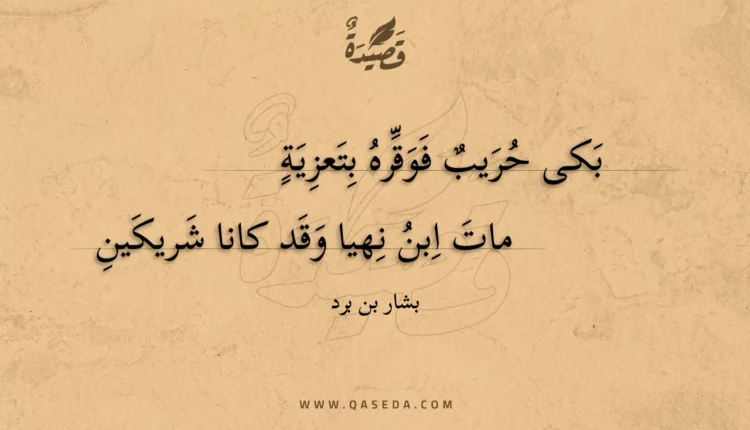 قَصِيْدَةٌ
بَكى حُرَيبٌ فَوَقِّرهُ بِتَعزِيَةٍ
ماتَ اِبنُ نِهيا وَقَد كانا شَريكَينِ
بشار بن برد
WWW.QASEDA.COM